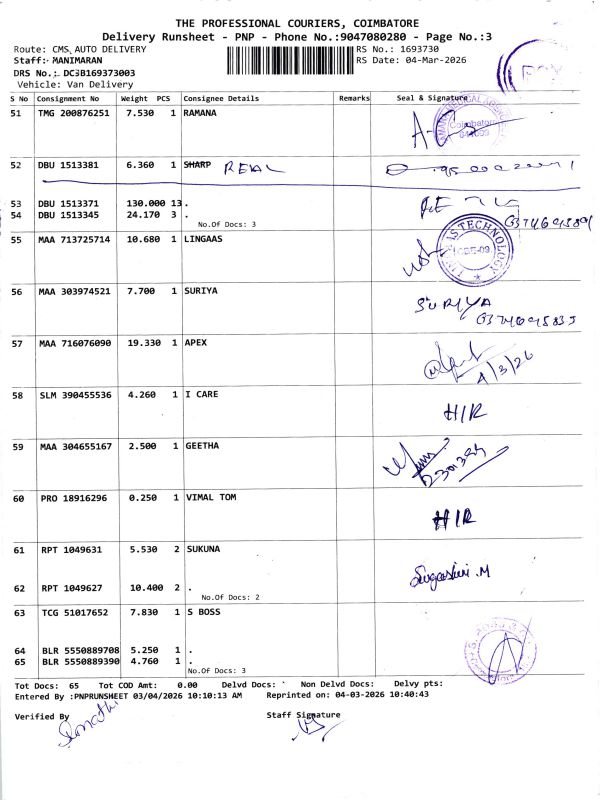 THE PROFESSIONAL COURIERS, COIMBATORE
Delivery Runsheet - PNP - Phone No.:9047080280 - Page No.:3
Route: CMS AUTO DELIVERY RS No.: 1693730
Staff: MANIMARAN RS Date: 04-Mar-2026
DRS No.: DC3B169373003
Vehicle: Van Delivery
S No Consignment No Weight PCS Consignee Details Remarks Seal & Signature
51 TMG 200876251 7.530 1 RAMANA
52 DBU 1513381 6.360 1 SHARP REAL
53 DBU 1513371 130.000 13 .
54 DBU 1513345 24.170 3 .
No.Of Docs: 3
55 MAA 713725714 10.680 1 LINGAAS
56 MAA 303974521 7.700 1 SURIYA
SURIYA
57 MAA 716076090 19.330 1 APEX
4/3/26
58 SLM 390455536 4.260 1 I CARE
H/R
59 MAA 304655167 2.500 1 GEETHA
60 PRO 18916296 0.250 1 VIMAL TOM
H/R
61 RPT 1049631 5.530 2 SUKUNA
62 RPT 1049627 10.400 2 .
No.Of Docs: 2
63 TCG 51017652 7.830 1 S BOSS
64 BLR 5550889708 5.250 1 .
65 BLR 5550889390 4.760 1 .
No.Of Docs: 3
Tot Docs: 65 Tot COD Amt: 0.00 Delvd Docs: Non Delvd Docs: Delvy pts:
Entered By :PNPRUNSHEET 03/04/2026 10:10:13 AM Reprinted on: 04-03-2026 10:40:43
Verified By Staff Signature